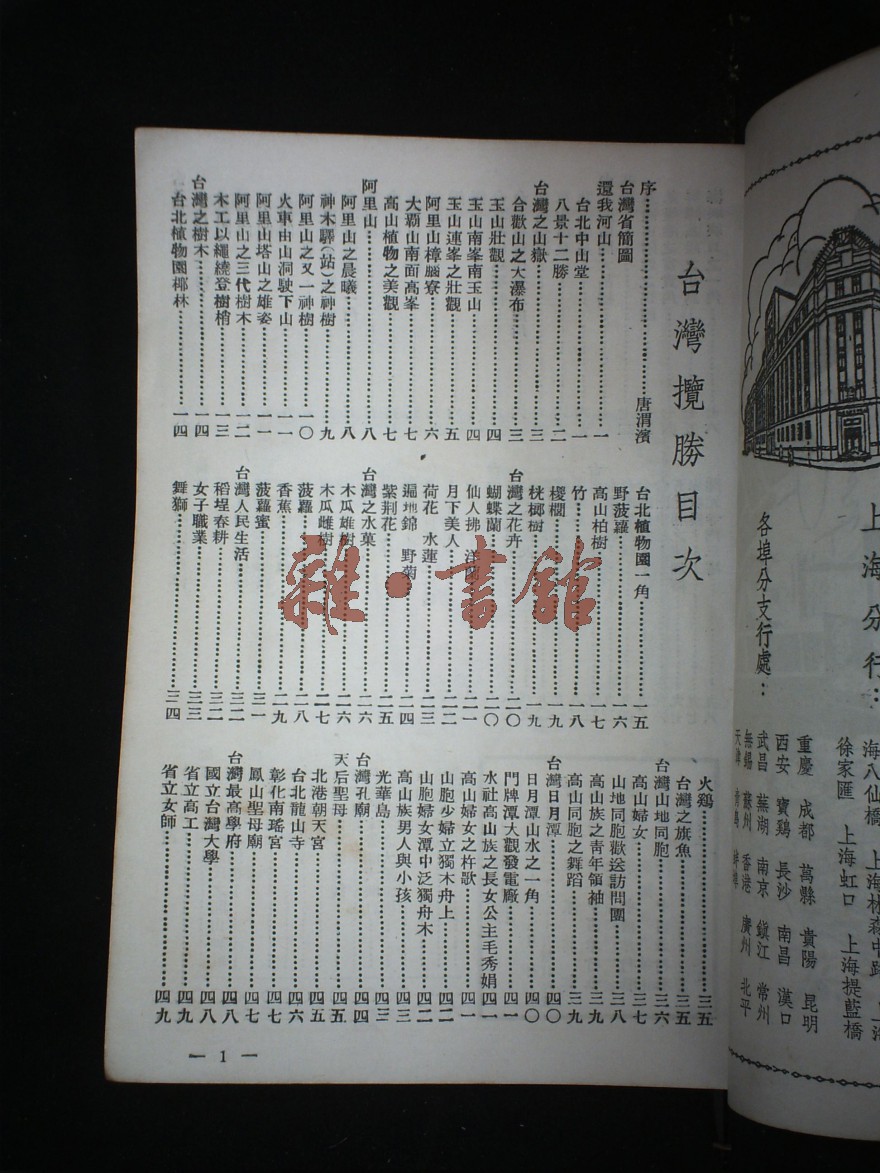 各埠分支行處：
重慶 成都 萬縣 貴陽 昆明
西安 寶鷄 長沙 南昌 漢口
武昌 蕪湖 南京 鎮江 常州
無錫 蘇州 香港 廣州 北平
上海分行：
徐家匯 上海虹口 上海提藍橋
台灣攬勝目次
序……唐渭濱
台灣省簡圖
還我河山……一
台北中山堂……一
八景十二勝……二
台灣之山嶽……三
合歡山之大瀑布……三
玉山壯觀……四
玉山南峯南玉山……四
玉山連峯之壯觀……五
阿里山樟腦寮……六
大霸山南面高峯……七
高山植物之美觀……七
阿里山……八
阿里山之晨曦……八
神木驛(站)之神樹……九
阿里山之又一神樹……一〇
火車由山洞駛下山……一一
阿里山塔山之雄姿……一一
阿里山之三代樹木……一二
木工以繩繞登樹梢……一三
台灣之樹木……一四
台北植物園椰林……一四
台北植物園一角……一五
野菠蘿……一六
高山柏樹……一七
竹……一八
椶櫚……一九
桄榔樹……一九
台灣之花卉……二〇
蝴蝶蘭……二〇
仙人拂 洋……二一
月下美人……二二
荷花 水蓮……二三
遍地錦 野菊……二四
紫荊花……二五
台灣之水菓……二六
木瓜雄樹……二六
木瓜雌樹……二七
菠蘿……二八
香蕉……二九
菠蘿蜜……三一
台灣人民生活……三二
稻埕春耕……三二
女子職業……三三
舞獅……三四
火鷄……三五
台灣之旗魚……三五
台灣山地同胞……三六
高山婦女……三七
山地同胞歡送訪問團……三八
高山族之青年領袖……三九
高山同胞之舞蹈……三九
台灣日月潭……四〇
日月潭山水之一角……四〇
門牌潭大觀發電廠……四一
水社高山族之長女公主毛秀娟……四一
高山婦女之杵歌……四一
山胞少婦立獨木舟上……四二
山胞婦女潭中泛獨舟木……四二
高山族男人與小孩……四三
光華島……四三
台灣孔廟……四四
天后聖母……四五
北港朝天宮……四五
台北龍山寺……四六
彰化南瑤宮……四七
鳳山聖母廟……四七
台灣最高學府……四八
國立台灣大學……四八
省立高工……四九
省立女師……四九
— 1 —
雜·書館